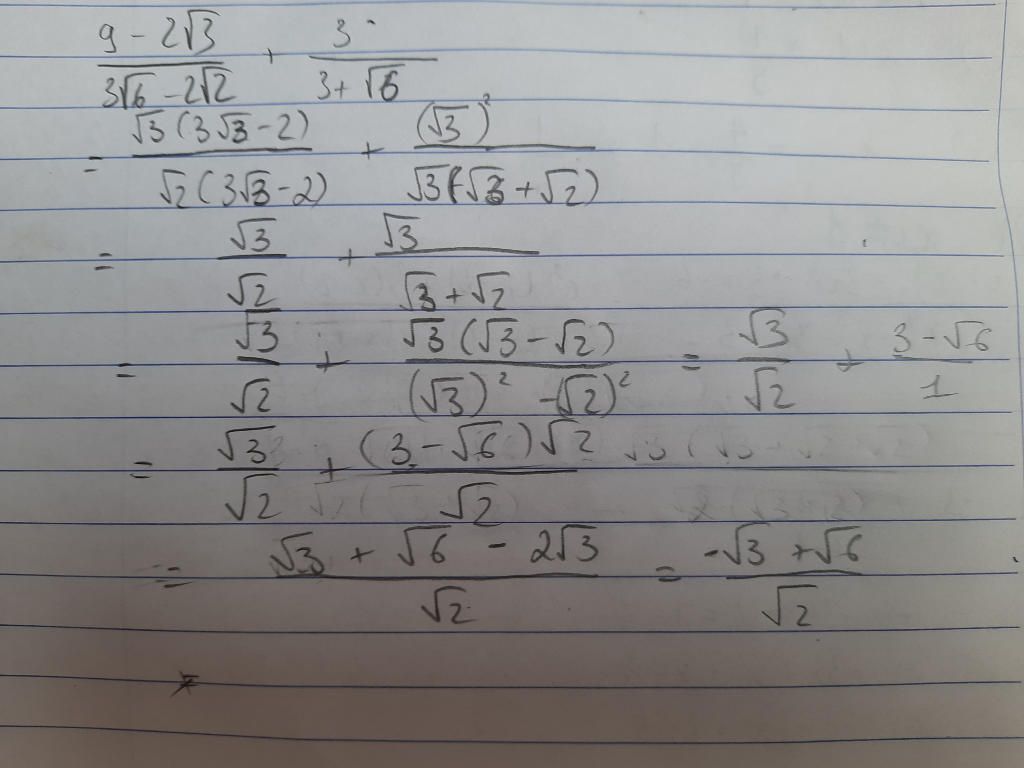 (9 - 2√3)/(3√6 - 2√2) + 3/(3 + √6)
= √3(3√3 - 2)/√2(3√3 - 2) + (√3)²/√3(√3 + √2)
= √3/√2 + √3/(√3 + √2)
= √3/√2 + √3(√3 - √2)/((√3)² - (√2)²) = √3/√2 + (3 - √6)/1
= √3/√2 + (3 - √6)√2/√2
= (√3 + √6 - 2√3)/√2 = (-√3 + √6)/√2